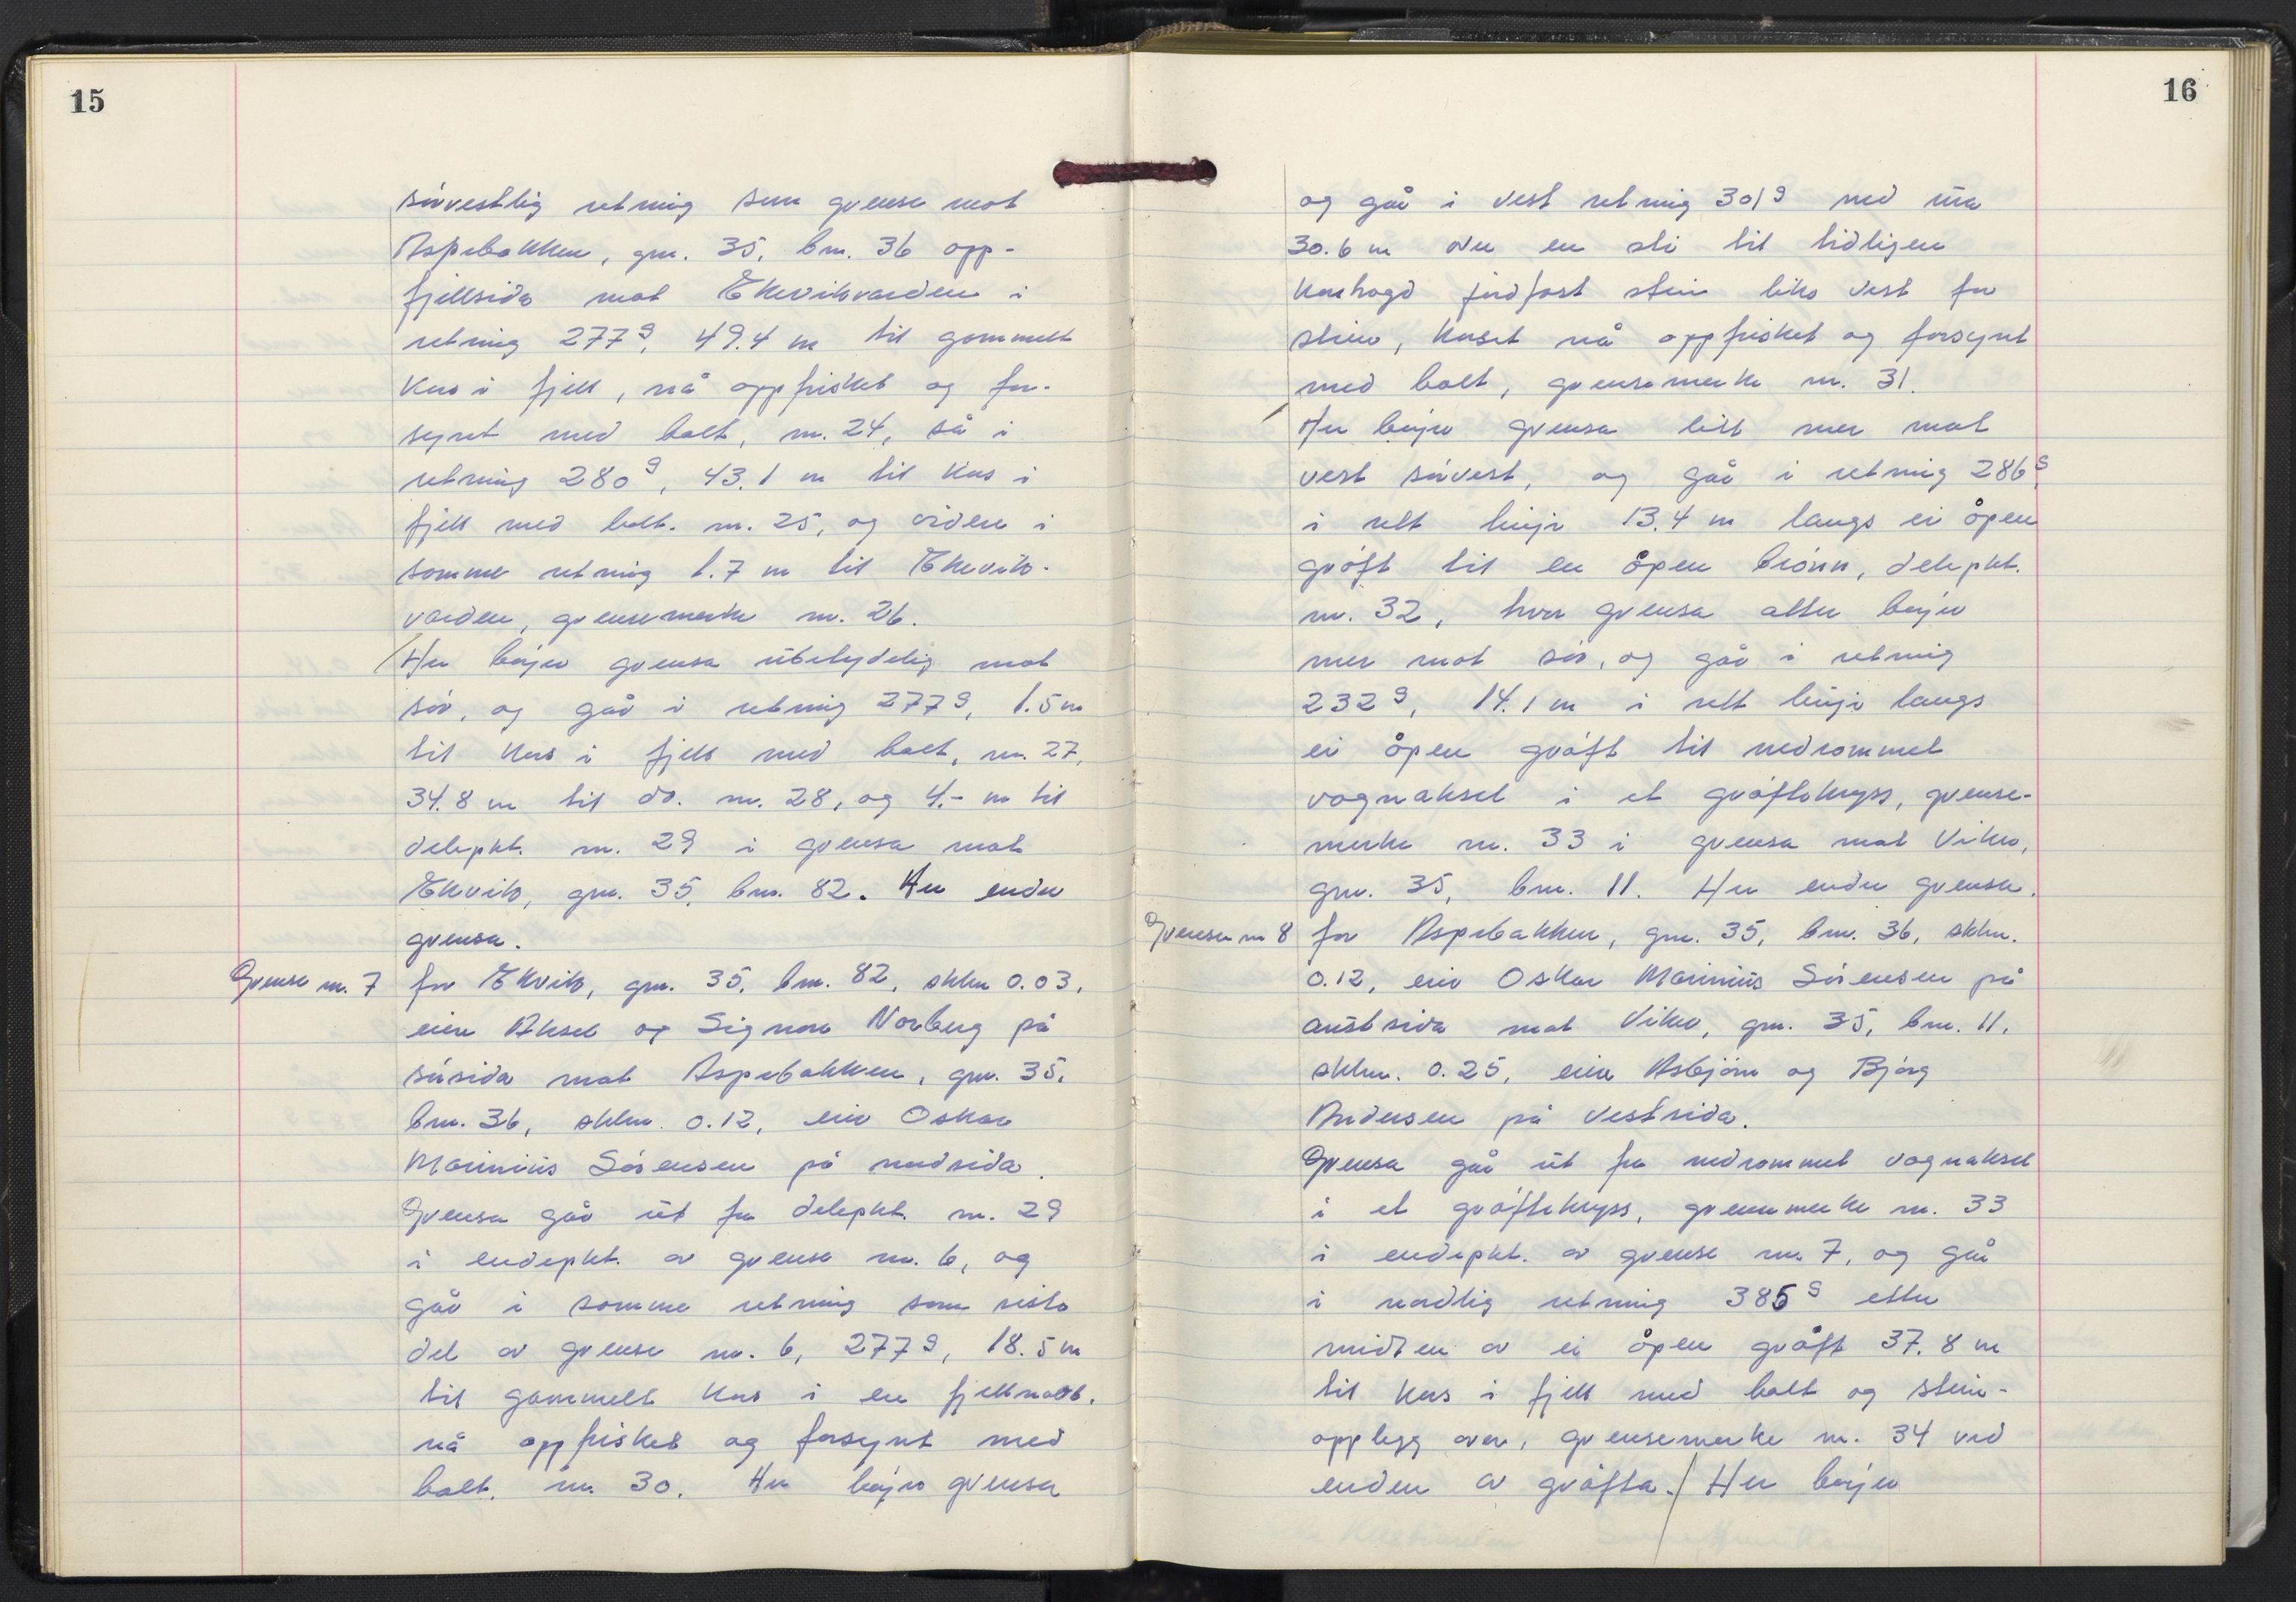 15
sørvestlig retning som grense mot
Aspebakken, gnr. 35, bnr. 36 opp-
fjellsida mot Ekevikvarden i
retning 277g, 49.4 m til gammelt
kors i fjell, nå oppfrisket og for-
synt med bolt, nr. 24, så i
retning 280g, 43.1 m til kors i
fjell med bolt. nr. 25, og videre i
samme retning 1.7 m til Ekevik-
varden, grensemerke nr. 26.
Her bøyer grensa ubetydelig mot
sør, og går i retning 277g, 1.5 m
til kors i fjell med bolt, nr. 27,
34.8 m til do. nr. 28, og 4.- m til
delepkt. nr. 29 i grensa mot
Ekvik, gnr. 35, bnr. 82. Her ender
grensa.
Grense nr. 7 for Ekvik, gnr. 35, bnr. 82, skkn 0.03,
eier Aksel og Signora Norberg på
sørsida mot Aspebakken, gnr. 35,
bnr. 36, skkn. 0.12, eier Oskar
Marinius Sørensen på nordsida.
Grensa går ut fra delepkt. nr. 29
i endepkt. av grense nr. 6, og
går i samme retning som siste
del av grense nr. 6, 277g, 18.5 m
til gammelt kors i en fjellnabb,
nå oppfrisket og forsynt med
bolt, nr. 30. Her bøyer grensa
16
og går i vest retning 301g ned ura
30.6 m over en sti til tidligere
korshogd jordfast stein like vest for
stien, korset nå oppfrisket og forsynt
med bolt, grensemerke nr. 31.
Her bøyer grensa litt mer mot
vest sørvest, og går i retning 286g,
i rett linje 13.4 m langs ei åpen
grøft til en åpen brønn, delepkt.
nr. 32, hvor grensa atter bøyer
mer mot sør, og går i retning
232g, 14.1 m i rett linje langs
ei åpen grøft til nedrammet
vognaksel i et grøftekryss, grense-
merke nr. 33 i grensa mot Viken,
gnr. 35, bnr. 11. Her ender grensen.
Grensen nr 8 for Aspebakken, gnr. 35, bnr. 36, skkn.
0.12, eier Oskar Marinius Sørensen på
austsida mot Viken, gnr. 35, bnr. 11,
skkn. 0.25, eier Asbjørn og Bjørg
Andersen på vestsida.
Grensa går ut fra nedrammet vognaksel
i et grøftekryss, grensemerke nr. 33
i endepkt. av grense nr. 7, og går
i nordlig retning 385g etter
midten av ei åpen grøft 37.8 m
til kors i fjell med bolt og stein-
opplegg over, grensemerke nr. 34 ved
enden av grøfta. / Her bøyer